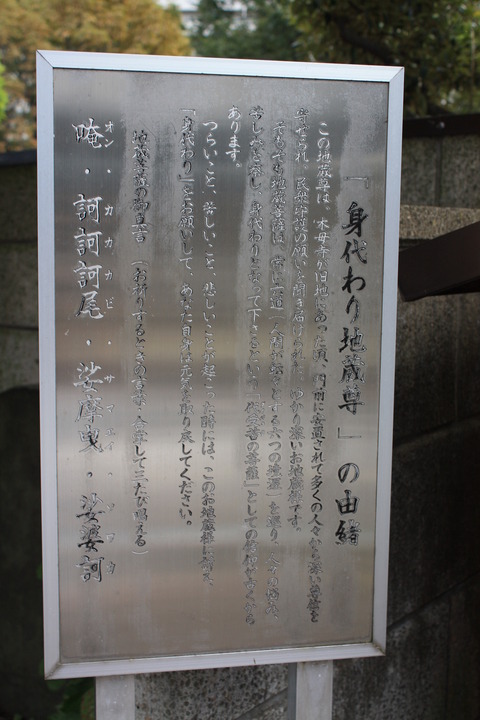 「身代わり地蔵尊」の由緒
この地蔵尊は、木母寺が旧地にあった頃、門前に安置されて多くの人々から深い尊信を
寄せられ、民衆守護の願いを聞き届けられた、ゆかり深いお地蔵様です。
そもそも地蔵菩薩は、常に六道(人間が落とする六つの迷界)を巡り、人々の悩み、
苦しみを除し、身代わりとなって下さるという「代受苦の菩薩」としての信仰が古くから
あります。
つらいこと、苦しいこと、悲しいことが起こった時には、このお地蔵様に
「身代わり」をお願いして、あなた自身は元気を取り戻してください。
地蔵菩薩の御真言 (お祈りするときの言葉・合掌して三たび唱える)
オン・カカカビ・サマエイ・ソワカ
唵・訶訶訶尾・娑摩曳・娑婆訶